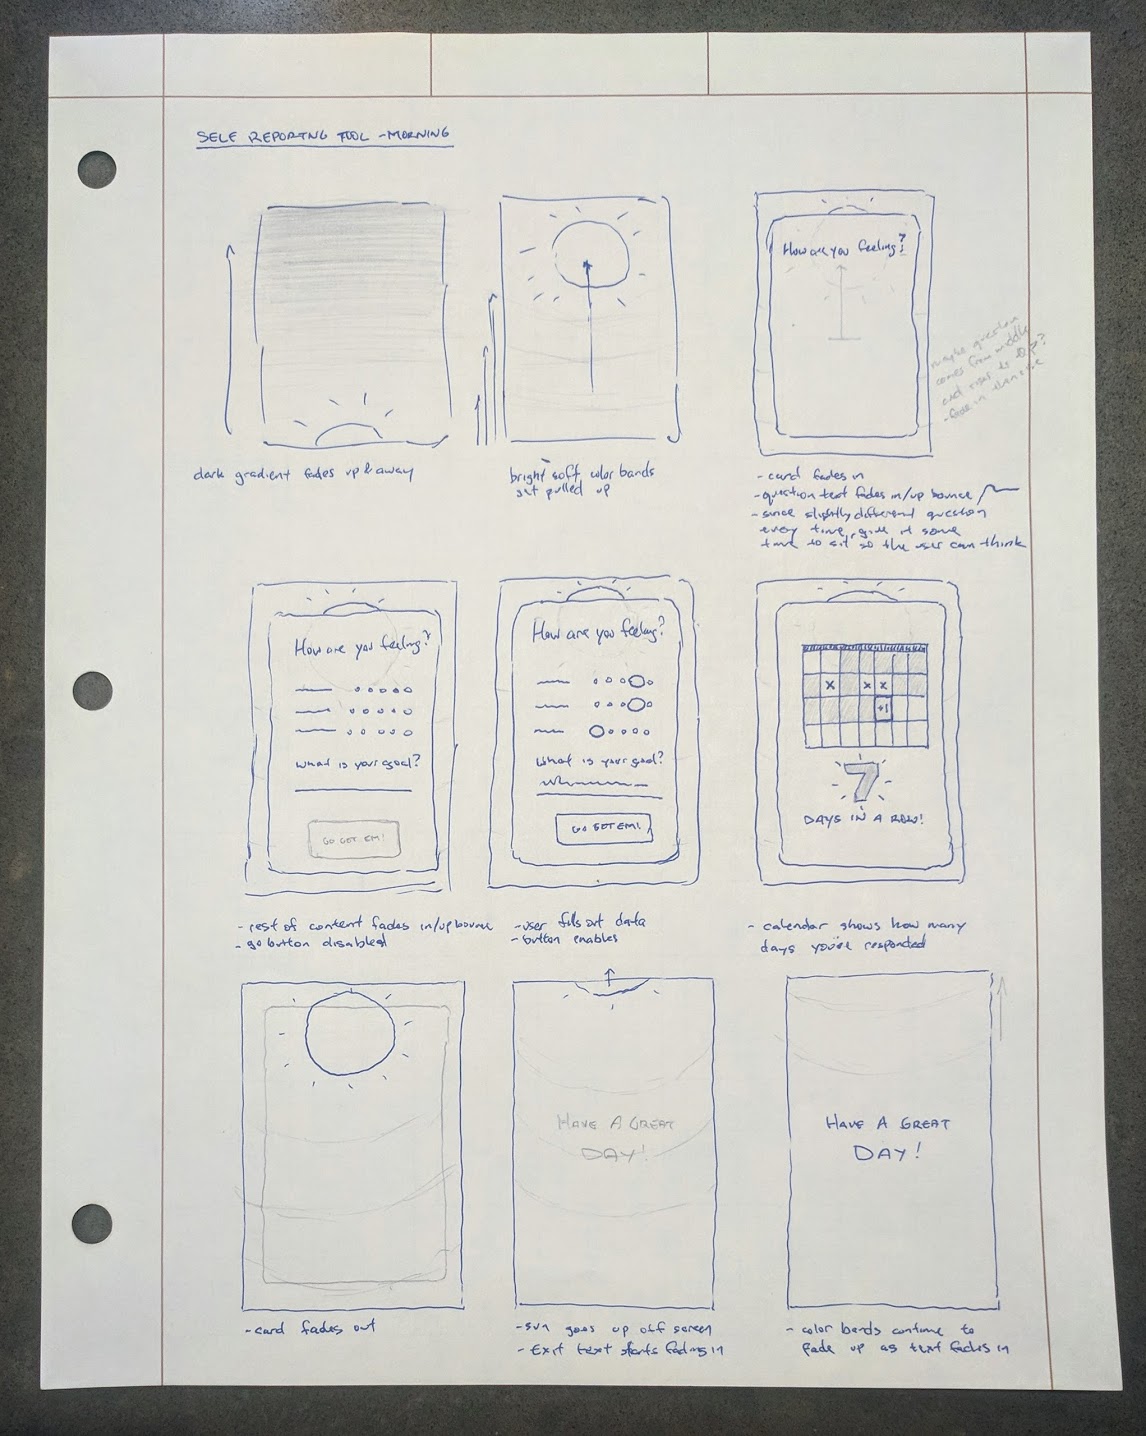 SELF REPORTING TOOL - MORNING
dark gradient fades up & away
bright soft color bands
get pulled up
How are you feeling?
maybe question
comes from middle
and rises to top?
- fade in then rise
- card fades in
- question text fades in/up bounce
- since slightly different question
every time, give it some
time to sit so the user can think
How are you feeling?
What is your goal?
GO GET EM!
- rest of content fades in/up bounce
- go button disabled
How are you feeling?
What is your goal?
GO GET EM!
- user fills out data
- button enables
x x x
+1
7
DAYS IN A ROW!
- calendar shows how many
days you've responded
- card fades out
HAVE A GREAT
DAY!
- sun goes up off screen
- Exit text starts fading in
HAVE A GREAT
DAY!
- color bands continue to
fade up as text fades in